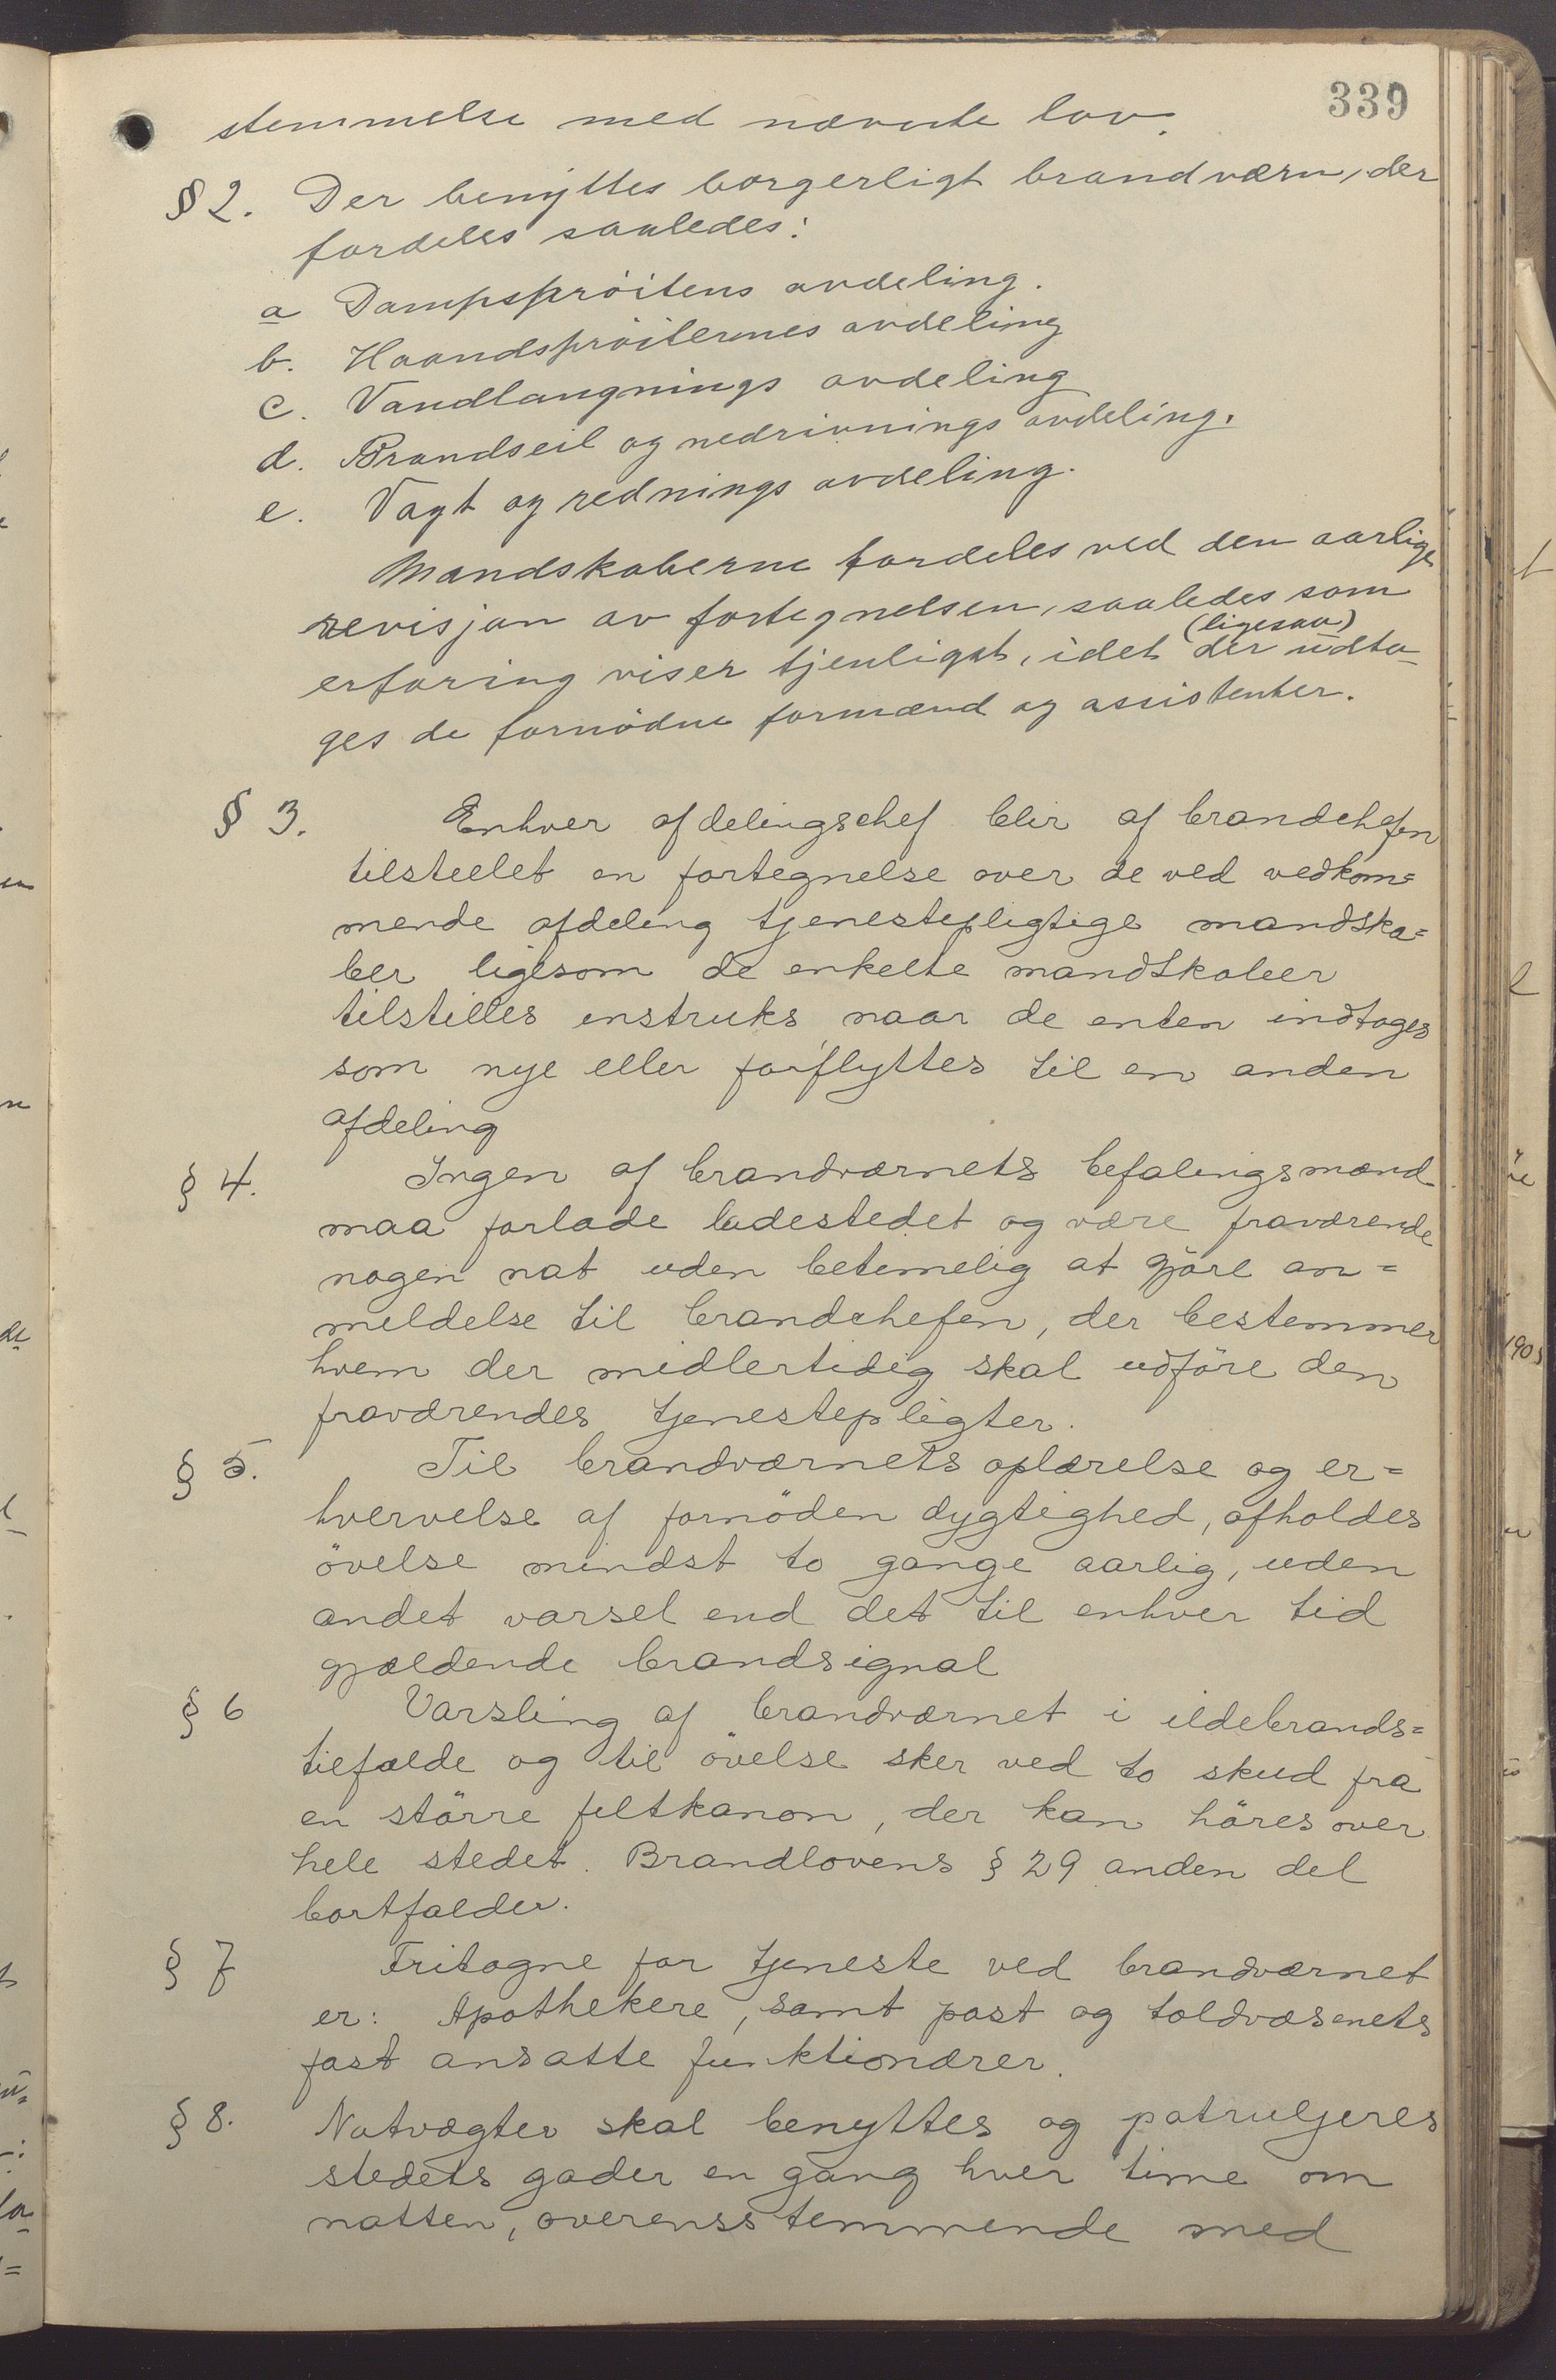 339
stemmelse med nævnte lov.
§ 2. Der benyttes borgerligt brandværn, der
fordeles saaledes:
a Dampspröitens avdeling.
b. Haandspröiternes avdeling
c. Vandlangnings avdeling
d. Brandseil og nedrivnings avdeling.
e. Vagt og rednings avdeling.
Mandskaberne fordeles ved den aarlige
revisjon av fortegnelsen, saaledes som
erfaring viser tjenligst, idet der (ligesaa) udta-
ges de fornödne formænd og assistenter.
§ 3. Enhver afdelingschef blir af brandchefen
tilstelet en fortegnelse over de ved vedkom=
mende afdeling tjenestepligtige mandska=
ber ligesom de enkelte mandskaber
tilstilles instruks naar de enten indtages
som nye eller forflyttes til en anden
afdeling
§ 4. Ingen af brandværnets befalingsmænd
maa forlade ladestedet og være fraværende
nogen nat uden betimelig at gjöre an=
meldelse til brandchefen, der bestemmer
hvem der midlertidig skal udföre den
fraværendes tjenestepligter.
§ 5. Til brandværnets oplærelse og er=
hvervelse af fornöden dygtighed, afholdes
övelse mindst to gange aarlig, uden
andet varsel end det til enhver tid
gjældende brandsignal
§ 6 Varsling af brandværnet i ildebrands=
tilfælde og til övelse sker ved to skud fra
en större feltkanon, der kan höres over
hele stedet. Brandlovens § 29 anden del
bortfalder.
§ 7 Fritagne for tjeneste ved brandværnet
er: Apothekere, samt post og toldvæsenets
fast ansatte funktionærer.
§ 8. Natvægter skal benyttes og patruljeres
stedets gader en gang hver time om
natten, overensstemmende med